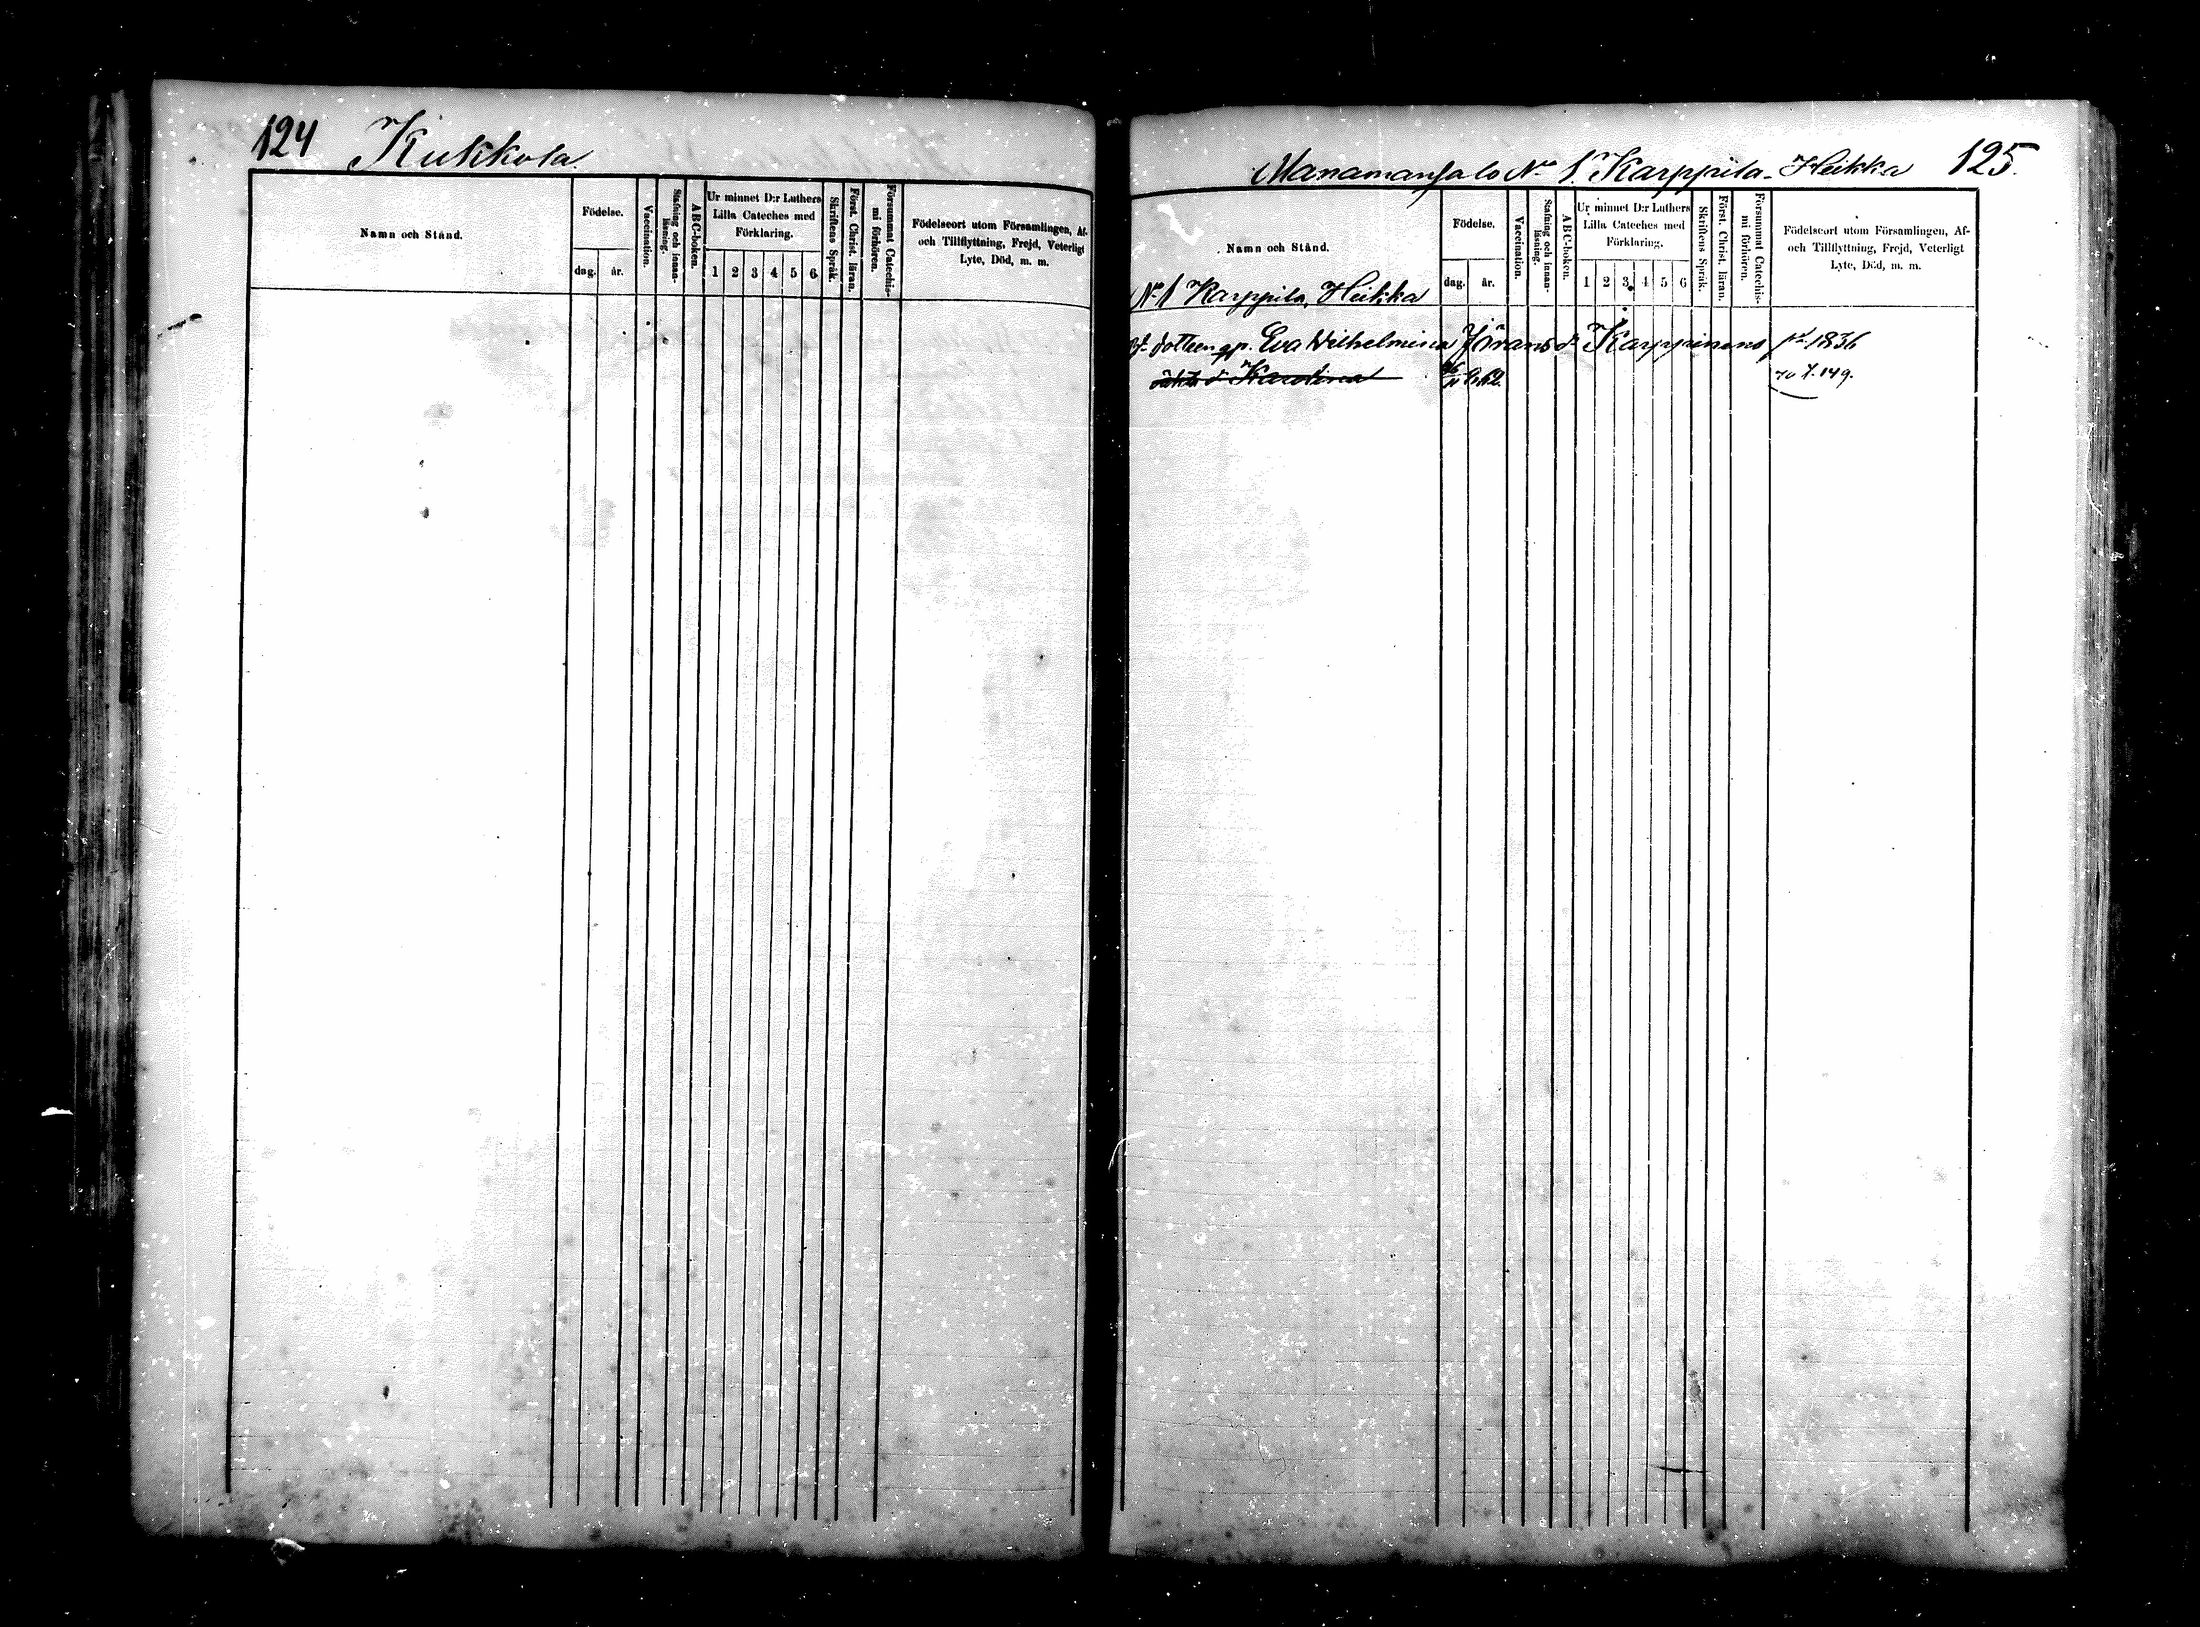 124 Kukkola.
Namn och Stånd.
Födelse.
dag.
år.
Vaccination.
Stafning och innan-
läsning.
ABC-boken.
Ur minnet D:r Luthers
Lilla Cateches med
Förklaring.
1 2 3 4 5 6
Skriftens Språk.
Först. Christ. läran.
Försummat Catechis-
mi förhören.
Födelseort utom Församlingen, Af-
och Tillflyttning, Frejd, Veterligt
Lyte, Död, m. m.
Manamansalo No 1. Karppila-Heikka 125.
Namn och Stånd.
Födelse.
dag.
år.
Vaccination.
Stafning och innan-
läsning.
ABC-boken.
Ur minnet D:r Luthers
Lilla Cateches med
Förklaring.
1 2 3 4 5 6
Skriftens Språk.
Först. Christ. läran.
Försummat Catechis-
mi förhören.
Födelseort utom Församlingen, Af-
och Tillflyttning, Frejd, Veterligt
Lyte, Död, m. m.
No 1 Karppila, Heikka
dottren Eva Wilhelmina Jörans d. Karppinens 1836
d. Karolina 62 149.